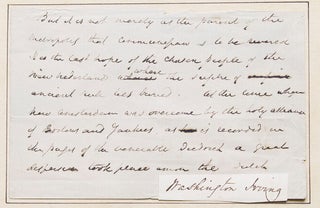 But it is not merely as the parent of the
metropolis that Communipaw is to be revered
is the last hope of the chosen people of the
New Nederlands where the sceptre of
ancient rule lies buried. At the time when
New Amsterdam was overcome by the holy alliance
of Yankees as is recorded in
the pages of the venerable Diedrich a great
dispersion took place among the dutch
Washington Irving